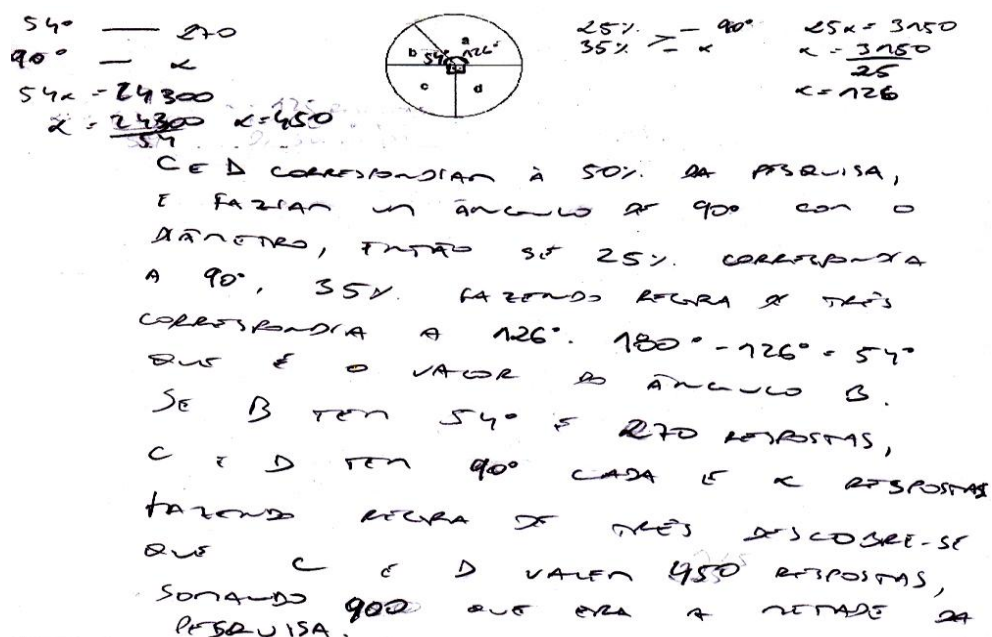 54° — 270
90° — x
54x = 24300
x = 24300
54
x = 450
a
b 54° 126°
c d
25% — 90°
35% — x
25x = 3150
x = 3150
25
x = 126
C E D CORRESPONDIAM À 50% DA PESQUISA,
E FAZIAM UM ÂNGULO DE 90° COM O
DIÂMETRO, ENTÃO SE 25% CORRESPONDIA
A 90°, 35% FAZENDO REGRA DE TRÊS
CORRESPONDIA A 126°. 180° - 126° = 54°
QUE É O VALOR DO ÂNGULO B.
SE B TEM 54° E 270 RESPOSTAS,
C E D TEM 90° CADA E x RESPOSTAS
FAZENDO REGRA DE TRÊS DESCOBRE-SE
QUE C E D VALEM 450 RESPOSTAS,
SOMANDO 900 QUE ERA A METADE DA
PESQUISA.